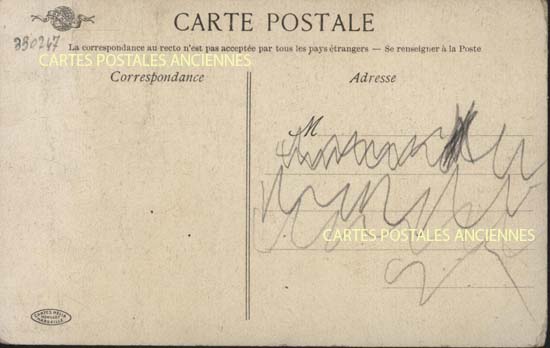 CARTE POSTALE
La correspondance au recto n'est pas acceptée par tous les pays étrangers — Se renseigner à la Poste
330247
CARTES POSTALES ANCIENNES
Correspondance
Adresse
M
CARTES POSTALES ANCIENNES
MARSEILLE